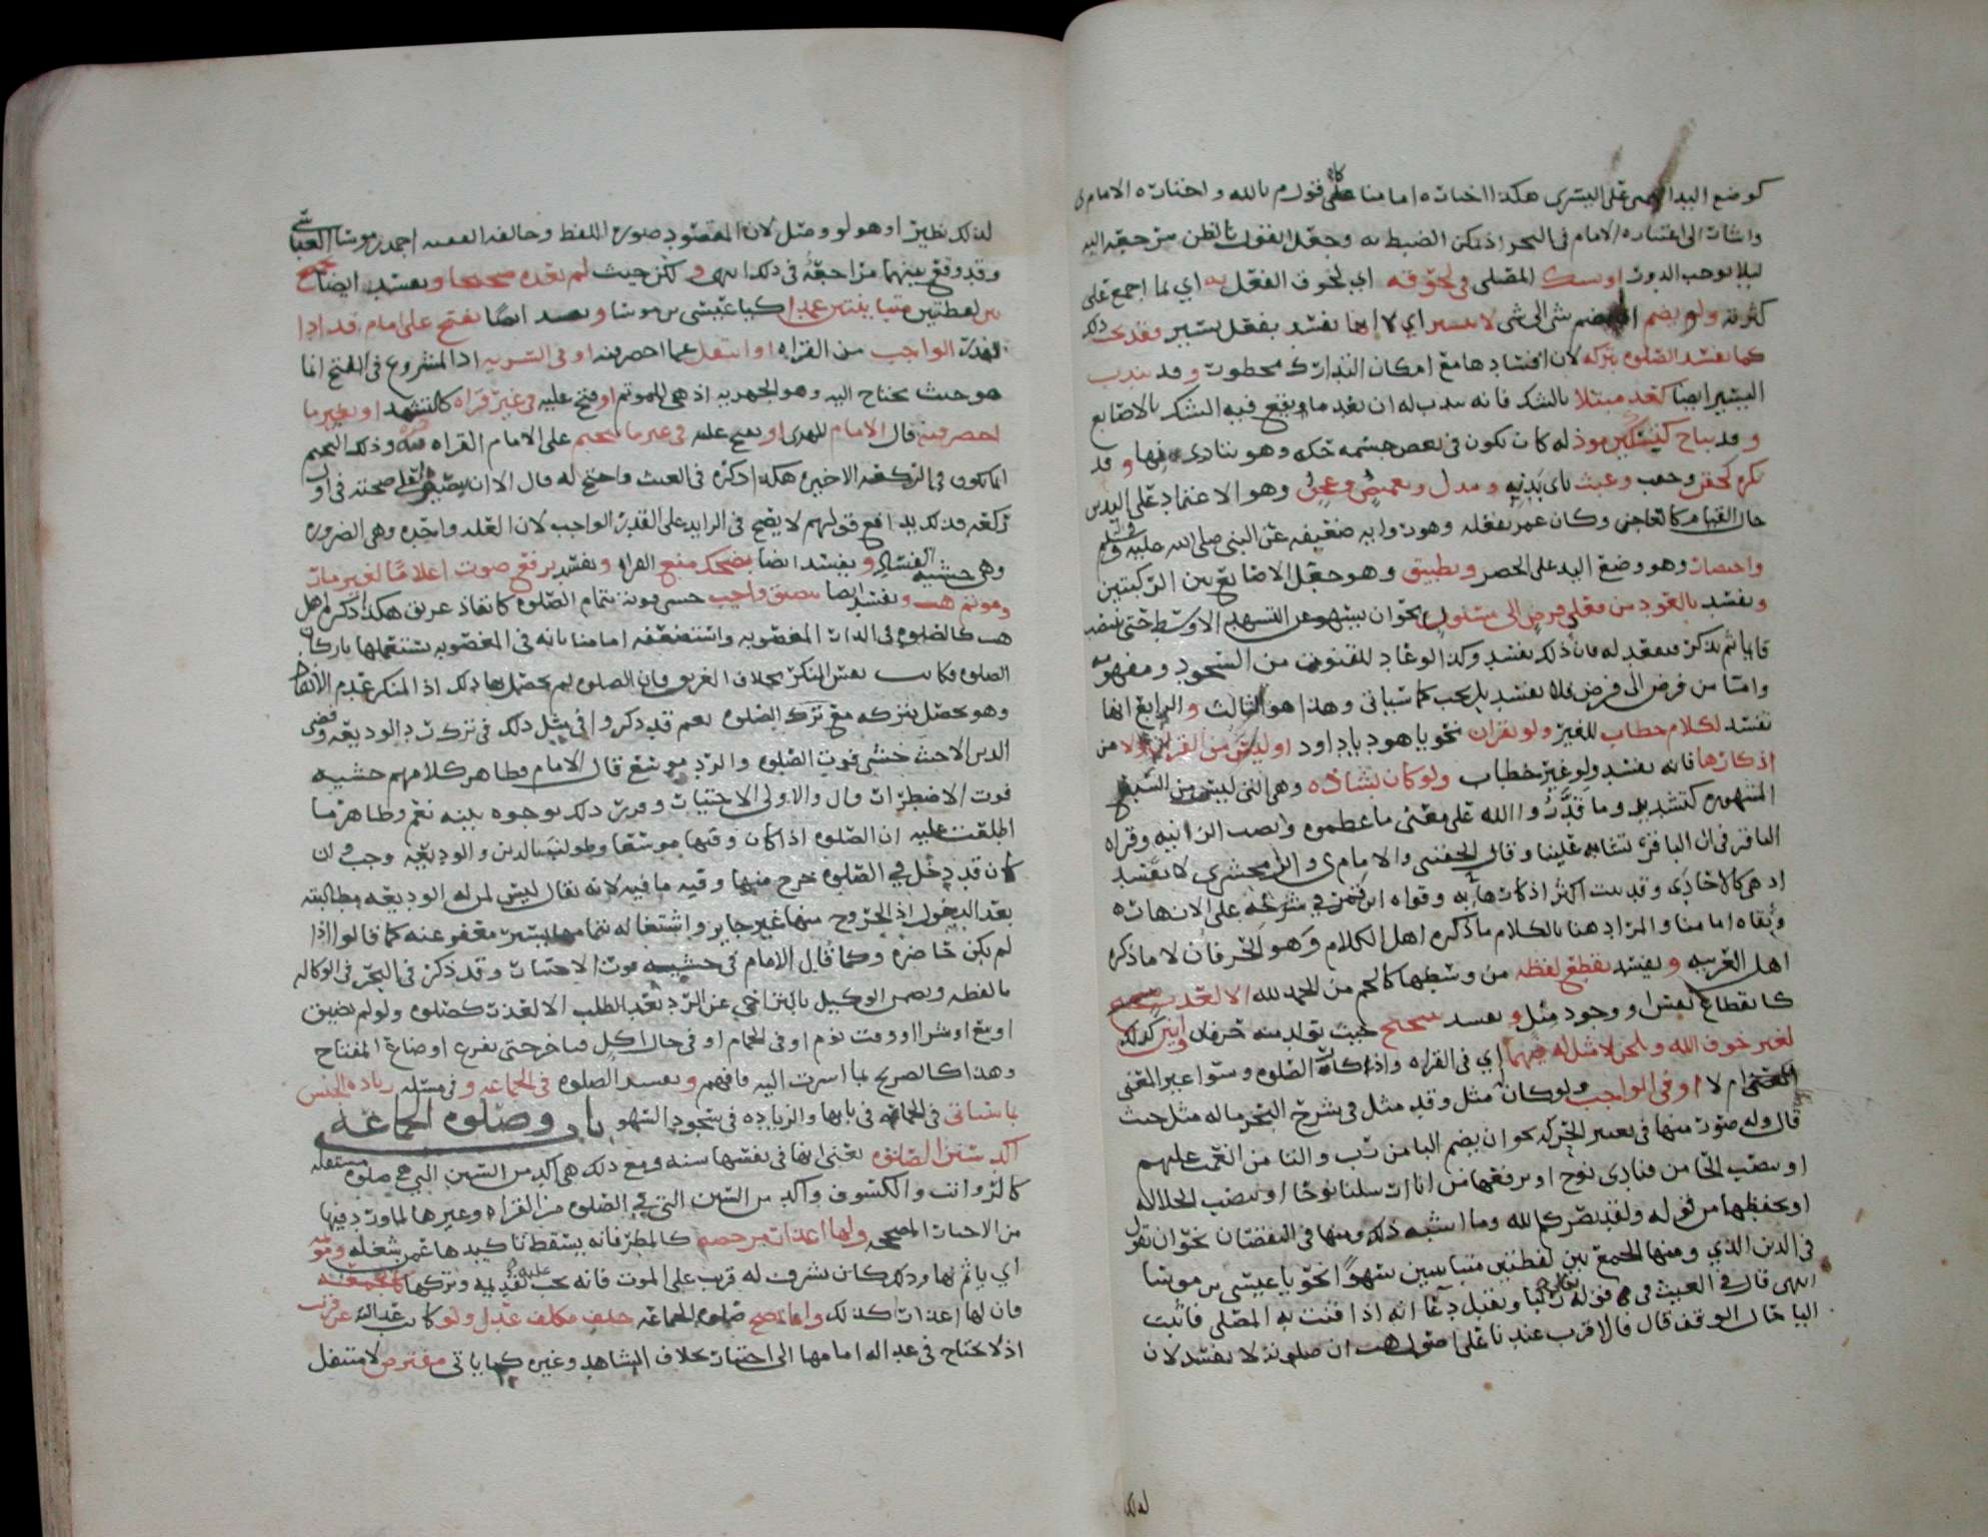 كوضع اليد اليمنى على اليسرى هكذا اختاره امامنا على قول م بالله واختاره الامام ى
واشار الى اعتباره الامام فى البحر اذ يمكن الضبط به وجعل القول بالظن من حقه اليه
ليلا يوجب الدور او يسكت المصلى فى لحوقه اي لحوق الفعل به اي بما اجمع على
كثرته ولو بضم شى الى شى لا يسير اي لا انها تفسد بفعل يسير وقد يجب ذلك
كما تفسد الصلوه بتركه لان افسادها مع امكان التدارك محظور وقد يندب
اليسير ايضا كعد مبتلا بالشك فانه يندب له ان يعد ما يقع فيه الشك بالاصابع
وقد يباح كيسير موذ له كان يكون فى بعض جسمه حك وهو يتاذى فيها وقد
يكره كحقن وعبث باى بدنه وتغميض وعجن وهو الاعتماد على اليدين
حال القيام كالعاجن وكان عمر يفعله وهو روايه ضعيفه عن النبى صلى الله عليه وسلم
واختصار وهو وضع اليد على الخصر وتطبيق وهو جعل الاصابع بين الركبتين
وتفسد بالعود من فعلي فرض الى مسنون نحو ان يسهو عن التشهد الاوسط حتى ينتصب
قايما ثم يذكر فيقعد له فان ذلك يفسد وكذا لو عاد للقنوت من السجود ومفهومه
واما من فرض الى فرض فلا تفسد بل يجب كما سياتى وهذا هو الثالث والرابع انها
تفسد لكلام خطاب للغير ولو بقران نحو يا هود يا داود او ليس من القران ولا من
اذكارها فانه يفسد ولو غير خطاب ولو كان بشاذه وهى التى ليست من السبع
المشهوره كتشديد وما قدروا الله على معنى ما عظموه ونصب الزانيه وقراه
الباقر فى ان الباقر تشابه علينا وقال الحفنى والامام ى والزمخشرى لا تفسد
اذ هى كالاحادى وقد بنت اكثر اذكارها به وقواه ابن فى شرحه على الازهار
وبقاه امامنا والمراد هنا بالكلام ما ذكره اهل الكلام وهو الحرفان لا ما ذكره
اهل العربيه ويفسد بقطع لفظه من وسطها كالحم من الحمد لله الا لعذر
كانقطاع نفس او وجود مثل وتفسد بتنحنح حيث تولد منه حرفان وانين كذلك
لغير خوف الله وبلحن لا مثل له فيهما اي فى القراه واذكار الصلوه وسوا غير المعنى
ام لا او فى الواجب ولو كان مثل وقد مثل فى شرح البحر ما له مثل حيث
قال وله صور منها فى تغيير الحركه نحو ان يضم البا من رب والتا من انعمت عليهم
او ينصب الحا من فنادى نوح او يرفعها من انا ارسلنا نوحا او ينصب الجلاله
او يخفضها من قوله ولقد نصركم الله وما اشبه ذلك ومنها فى النقصان نحو ان تقول
فى الدين الذي ومنها الجمع بين لفظتين متباينتين سهوا نحو يا عيسى بن موسا
انتهى قال فى الغيث فى قوله تعالى وتقبل دعا انه اذا قنت به المصلى فاثبت
اليا حال الوقف قال فالاقرب عندنا على اصول هب ان صلوته لا تفسد لان
لذلك
لذلك نظير او هو لو وصل لان المقصود صوره اللفظ وخالفه الفقيه احمد بن موسا العباسى
وقد وقع بينهما مراجعه فى ذلك انتهى ولكن حيث لم تعده صحيحا وتفسد ايضا بجمع
بين لفظتين متباينتين عمدا كيا عيسى بن موسا وتفسد ايضا بفتح على امام قد ادا
القدر الواجب من القراه او انتقل عما احصر فيه او فى السريه اذ المشروع فى الفتح انما
هو حيث يحتاج اليه وهو الجهريه اذ هى للموتم او فتح عليه فى غير قراه كالتشهد او بغير ما
احصر فيه قال الامام المهدى او يفتح عليه فى غير ما تحتم على الامام القراه فيه وذلك التحتم
انما يكون فى الركعه الاخيره هكذا ذكره فى الغيث واحتج له قال الا ان صحته فى اول
ركعه فذلك يدافع قولهم لا يفتح فى الزايد على القدر الواجب لان العله واحده وهى الضروره
وهى خشيه الفساد وتفسد ايضا بضحك منع القراه وتفسد برفع صوت اعلاما لغير مار
وموتم هب وتفسد ايضا بتضيق واجب خشى فوته بتمام الصلوه كانقاذ غريق هكذا ذكره اهل
هب كالصلوه فى الدار المغصوبه واستضعفه امامنا بانه فى المغصوبه يستعملها باركان
الصلوه فكانت نفس المنكر بخلاف الغريق فان الصلوه لم يحصل بها ذلك اذ المنكر عدم الانقاذ
وهو يحصل بتركه مع ترك الصلوه نعم قد ذكروا فى مثل ذلك فى ترك رد الوديعه وقضى
الدين الا حيث خشى فوت الصلوه والرد موسع قال الامام وظاهر كلامهم خشيه
فوت الاضطرار قال والاولى الاختيار وقرر ذلك بوجوه بينه نعم وظاهر ما
اطلقت عليه ان الصلوه اذا كان وقتها موسعا وطولب بالدين والوديعه وجب وان
كان قد دخل فى الصلوه خرج منها وفيه ما فيه لانه يقال ليس لمن له الوديعه مطالبته
بعد الدخول اذ الخروج منها غير جايز واشتغاله بتمامها يسير معفو عنه كما قالوا اذا
لم يكن حاضره وكما قال الامام فى خشيه فوت الاختيار وقد ذكر فى البحر فى الوكاله
ما لفظه ويضمن الوكيل بالتراخي عن الرد بعد الطلب الا لعذر كصلوه ولو لم تضيق
او بيع او شرا او وقت نوم او فى الحمام او فى حال اكل فاخر حتى يفرغ او ضاع المفتاح
وهذا كالصريح بما اشرت اليه فافهم وتفسد الصلوه فى الجماعه وفى مسئله زياده الجنس
بما سياتى فى الجماعه فى بابها والزياده فى سجود السهو باب وصلوه الجماعه
اكد سنن الصلوه يعنى انها فى نفسها سنه ومع ذلك هى اكد من السنن التى هى صلوه مستقله
كالرواتب والكسوف واكد من السنن التى فى الصلوه من القراه وغيرها لما ورد فيها
من الاخبار الصحيحه ولها اعذار مرخصه كالمطر فانه يسقط تاكيدها عمن شغله وموثمه
اي ياثم بها وذلك كان يشرف له قريب على الموت فانه يجب عليه تقديمه وتركها كالجمعه
فان لها اعذار كذلك وانما تصح صلوه الجماعه خلف مكلف عدل ولو كانت عدالته عن قرب
اذ لا يحتاج فى عداله امامها الى اختبار بخلاف الشاهد وغيره كما ياتى مفترض لا متنفل